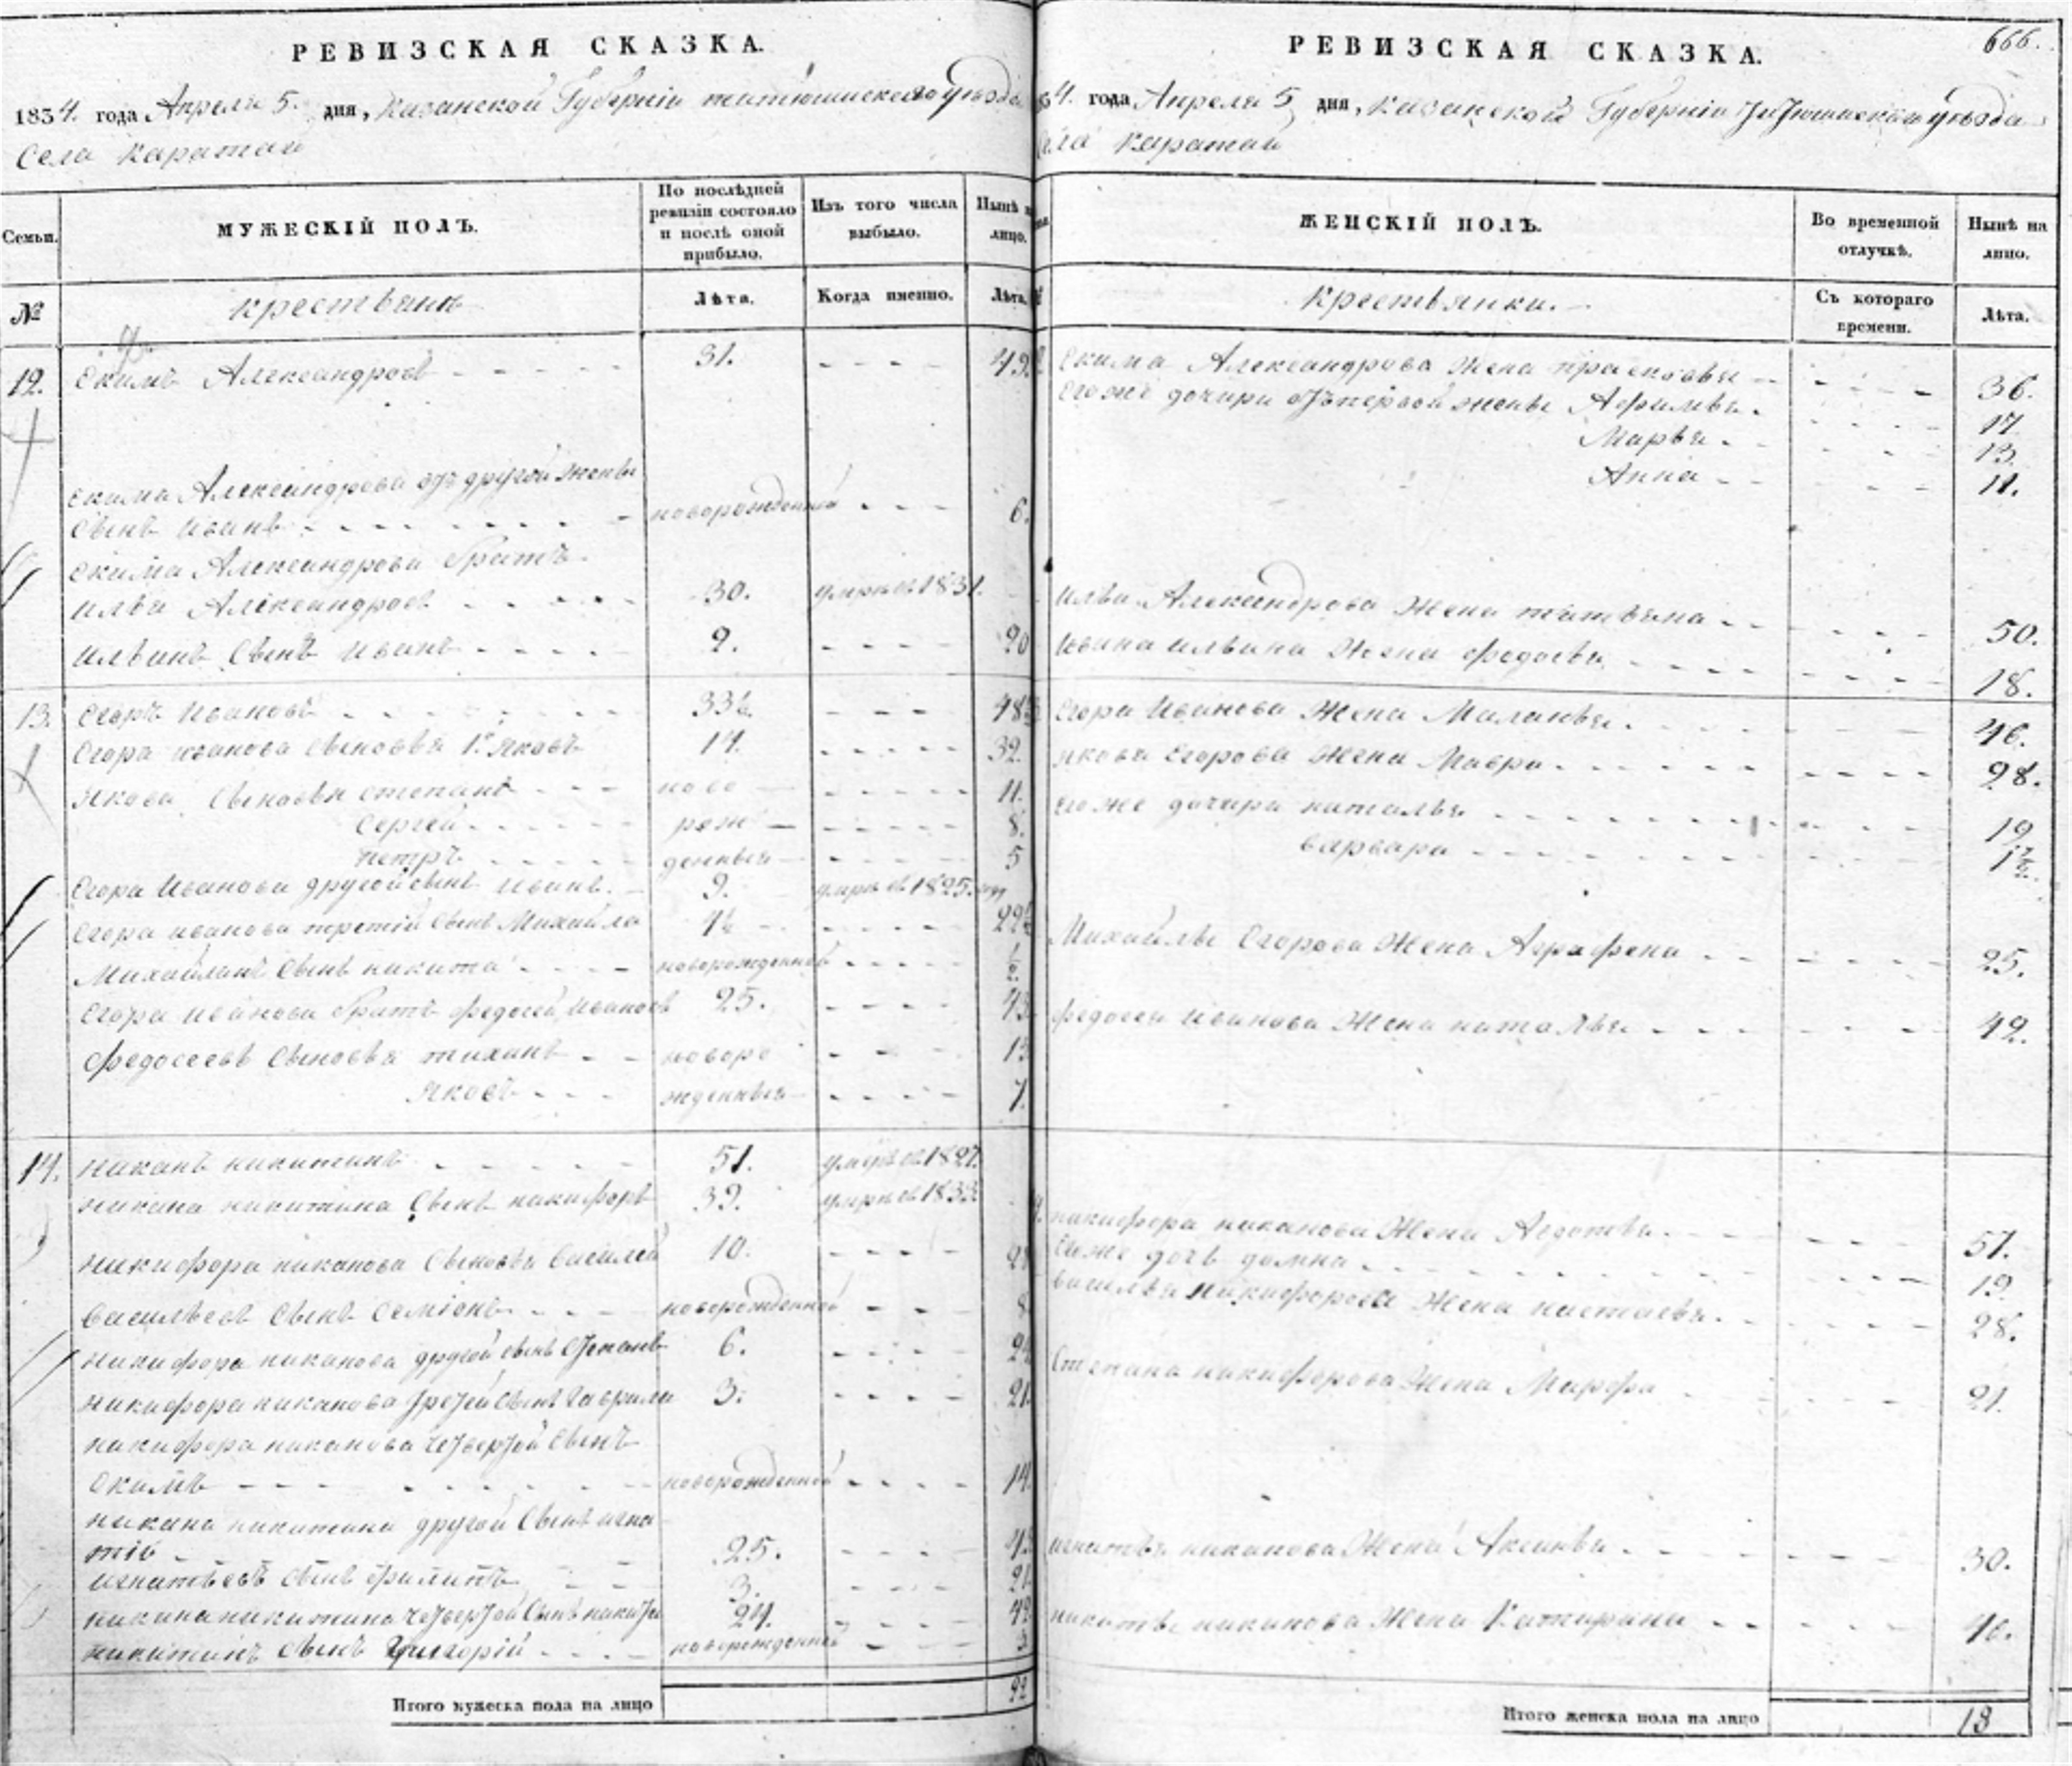 РЕВИЗСКАЯ СКАЗКА.
1834. года Апреля 5. дня, Казанской Губерніи тетюшискаго уѣзда
Села Каратаи
Семьи.
МУЖЕСКІЙ ПОЛЪ.
По послѣдней ревизіи состояло и послѣ оной прибыло.
Изъ того числа выбыло.
Нынѣ на лицо.
№
крестьяне
Лѣта.
Когда именно.
Лѣта.
12. Екимъ Александровъ 31. 49.
Екима Александрова отъ другой жены
сынъ Иванъ новорожденный 6.
Екима Александрова братъ
Илья Александровъ 30. умре въ 1831.
Ильинъ сынъ Иванъ 2. 20
13. Егоръ Ивановъ 33½ 48½
Егора Иванова сыновья 1й Яковъ 14. 32.
Якова сыновья степанъ ново 11.
Сергей рож 8.
петръ денныя 5
Егора Иванова другой сынъ Иванъ. 9. умре въ 1825. году
Егора Иванова третій сынъ Михайла 4½ 22½
Михайланъ сынъ никита новорожденной ½
Егора Иванова братъ Федосей Ивановъ 25. 43
Федосеевъ сыновья тиханъ новоро 13
Яковъ жденныя 7.
14. никанъ никитинъ 51. умре въ 1827.
никана никитина сынъ никифоръ 39. умре въ 1833.
никифора никанова сыновья василей 10. 28
васильевъ сынъ семіонъ новорожденной 8
никифора никанова другой сынъ степанъ 6. 24
никифора никанова третей сынъ гаврила 3. 21.
никифора никанова четвертой сынъ
Екимъ новорожденной 14.
никана никитина другой сынъ игна
тій 25. 43
игнатьевъ сынъ филипъ 3. 21
никана никитина четвертой сынъ никита 24. 42
никитинъ сынъ Григорій новорожденной
Итого мужеска пола на лицо 22
РЕВИЗСКАЯ СКАЗКА. 666.
34. года Апреля 5 дня, казанской Губерніи тетюшискаго уѣзда
Села Каратаи
ЖЕНСКІЙ ПОЛЪ.
Во временной отлучкѣ.
Нынѣ на лицо.
крестьянки.
Съ котораго времени.
Лѣта.
Екима Александрова жена прасковья 36.
Егоже дочери отъ первой жены Афимья 17
Марья 13.
Анна 11.
Ильи Александрова жена татьяна 50.
Ивана Ильина жена федосья 18.
Егора Иванова жена Маланья. 46.
Якова Егорова жена Мавра 28.
Егоже дочери наталья 12
варвара 1½
Михайлы Егорова жена Аграфена 25.
федосея Иванова жена наталья 42.
никифора никанова жена Авдотья. 57.
Егоже дочь домна 19
василья никифорова жена настасья. 28.
степана никифорова жена Марфа 21.
игнатья никанова жена Аксинья 30.
никиты никанова жена Катирина 40.
Итого женска пола на лицо 18